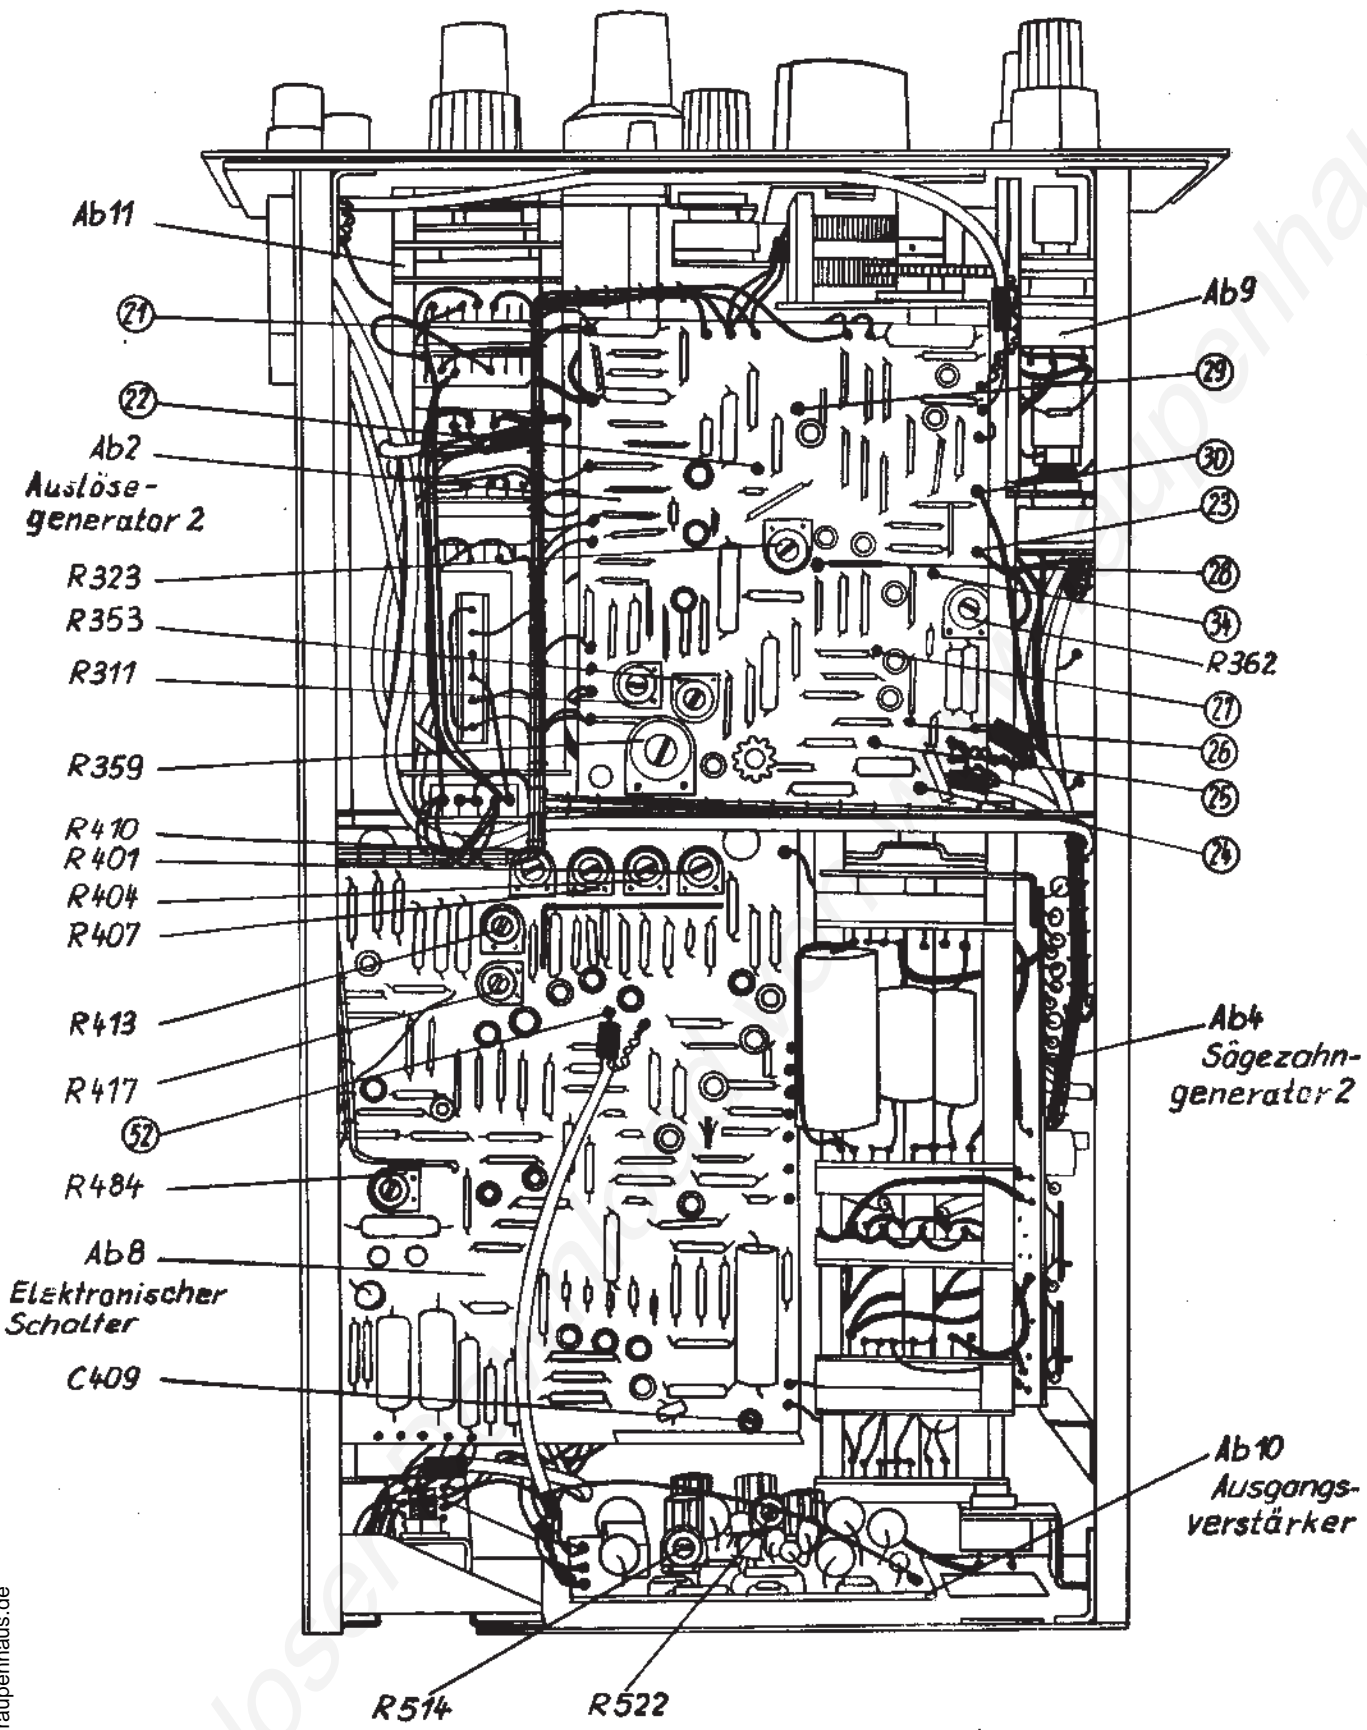 Ab11
21
22
Ab2
Auslöse-
generator 2
R323
R353
R311
R359
R410
R401
R404
R407
R413
R417
52
R484
Ab8
Elektronischer
Schalter
C409
Ab9
29
30
23
28
34
R362
27
26
25
24
Ab4
Sägezahn-
generator 2
Ab10
Ausgangs-
verstärker
R514
R522
raupenhaus.de